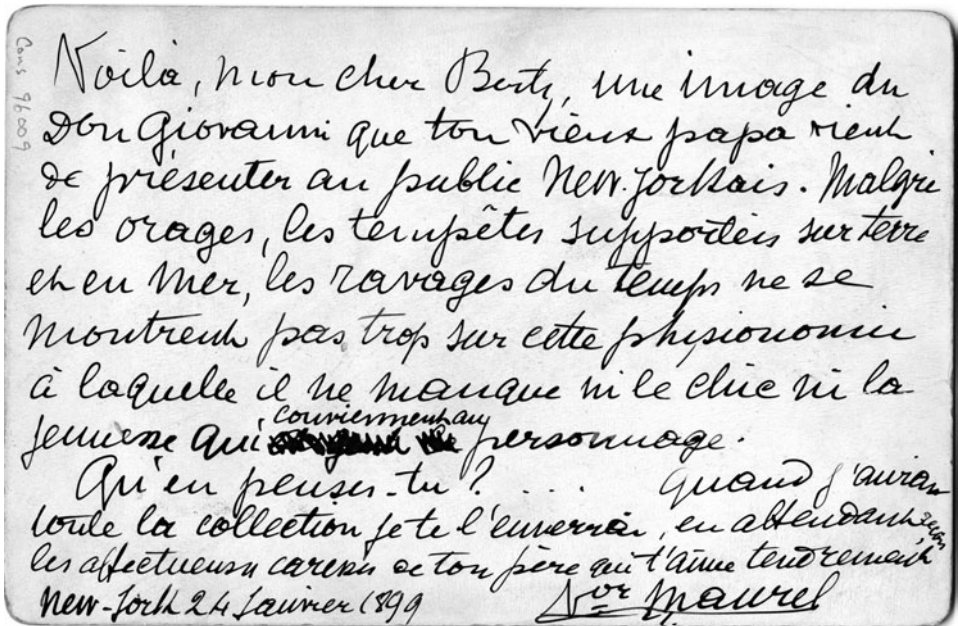 Cons 96009
Voilà, mon cher Berty, une image du
Don Giovanni que ton vieux papa vient
de présenter au public New-Yorkais. Malgré
les orages, les tempêtes supportées sur terre
et en mer, les ravages du temps ne se
montrent pas trop sur cette physionomie
à laquelle il ne manque ni le chic ni la
jeunesse qui conviennent au personnage.
Qu'en penses-tu ? . . . Quand j'aurai
toute la collection je te l'enverrai, en attendant
les affectueuses caresses de ton père qui t'aime tendrement
New-York 24 Janvier 1899 Vor Maurel